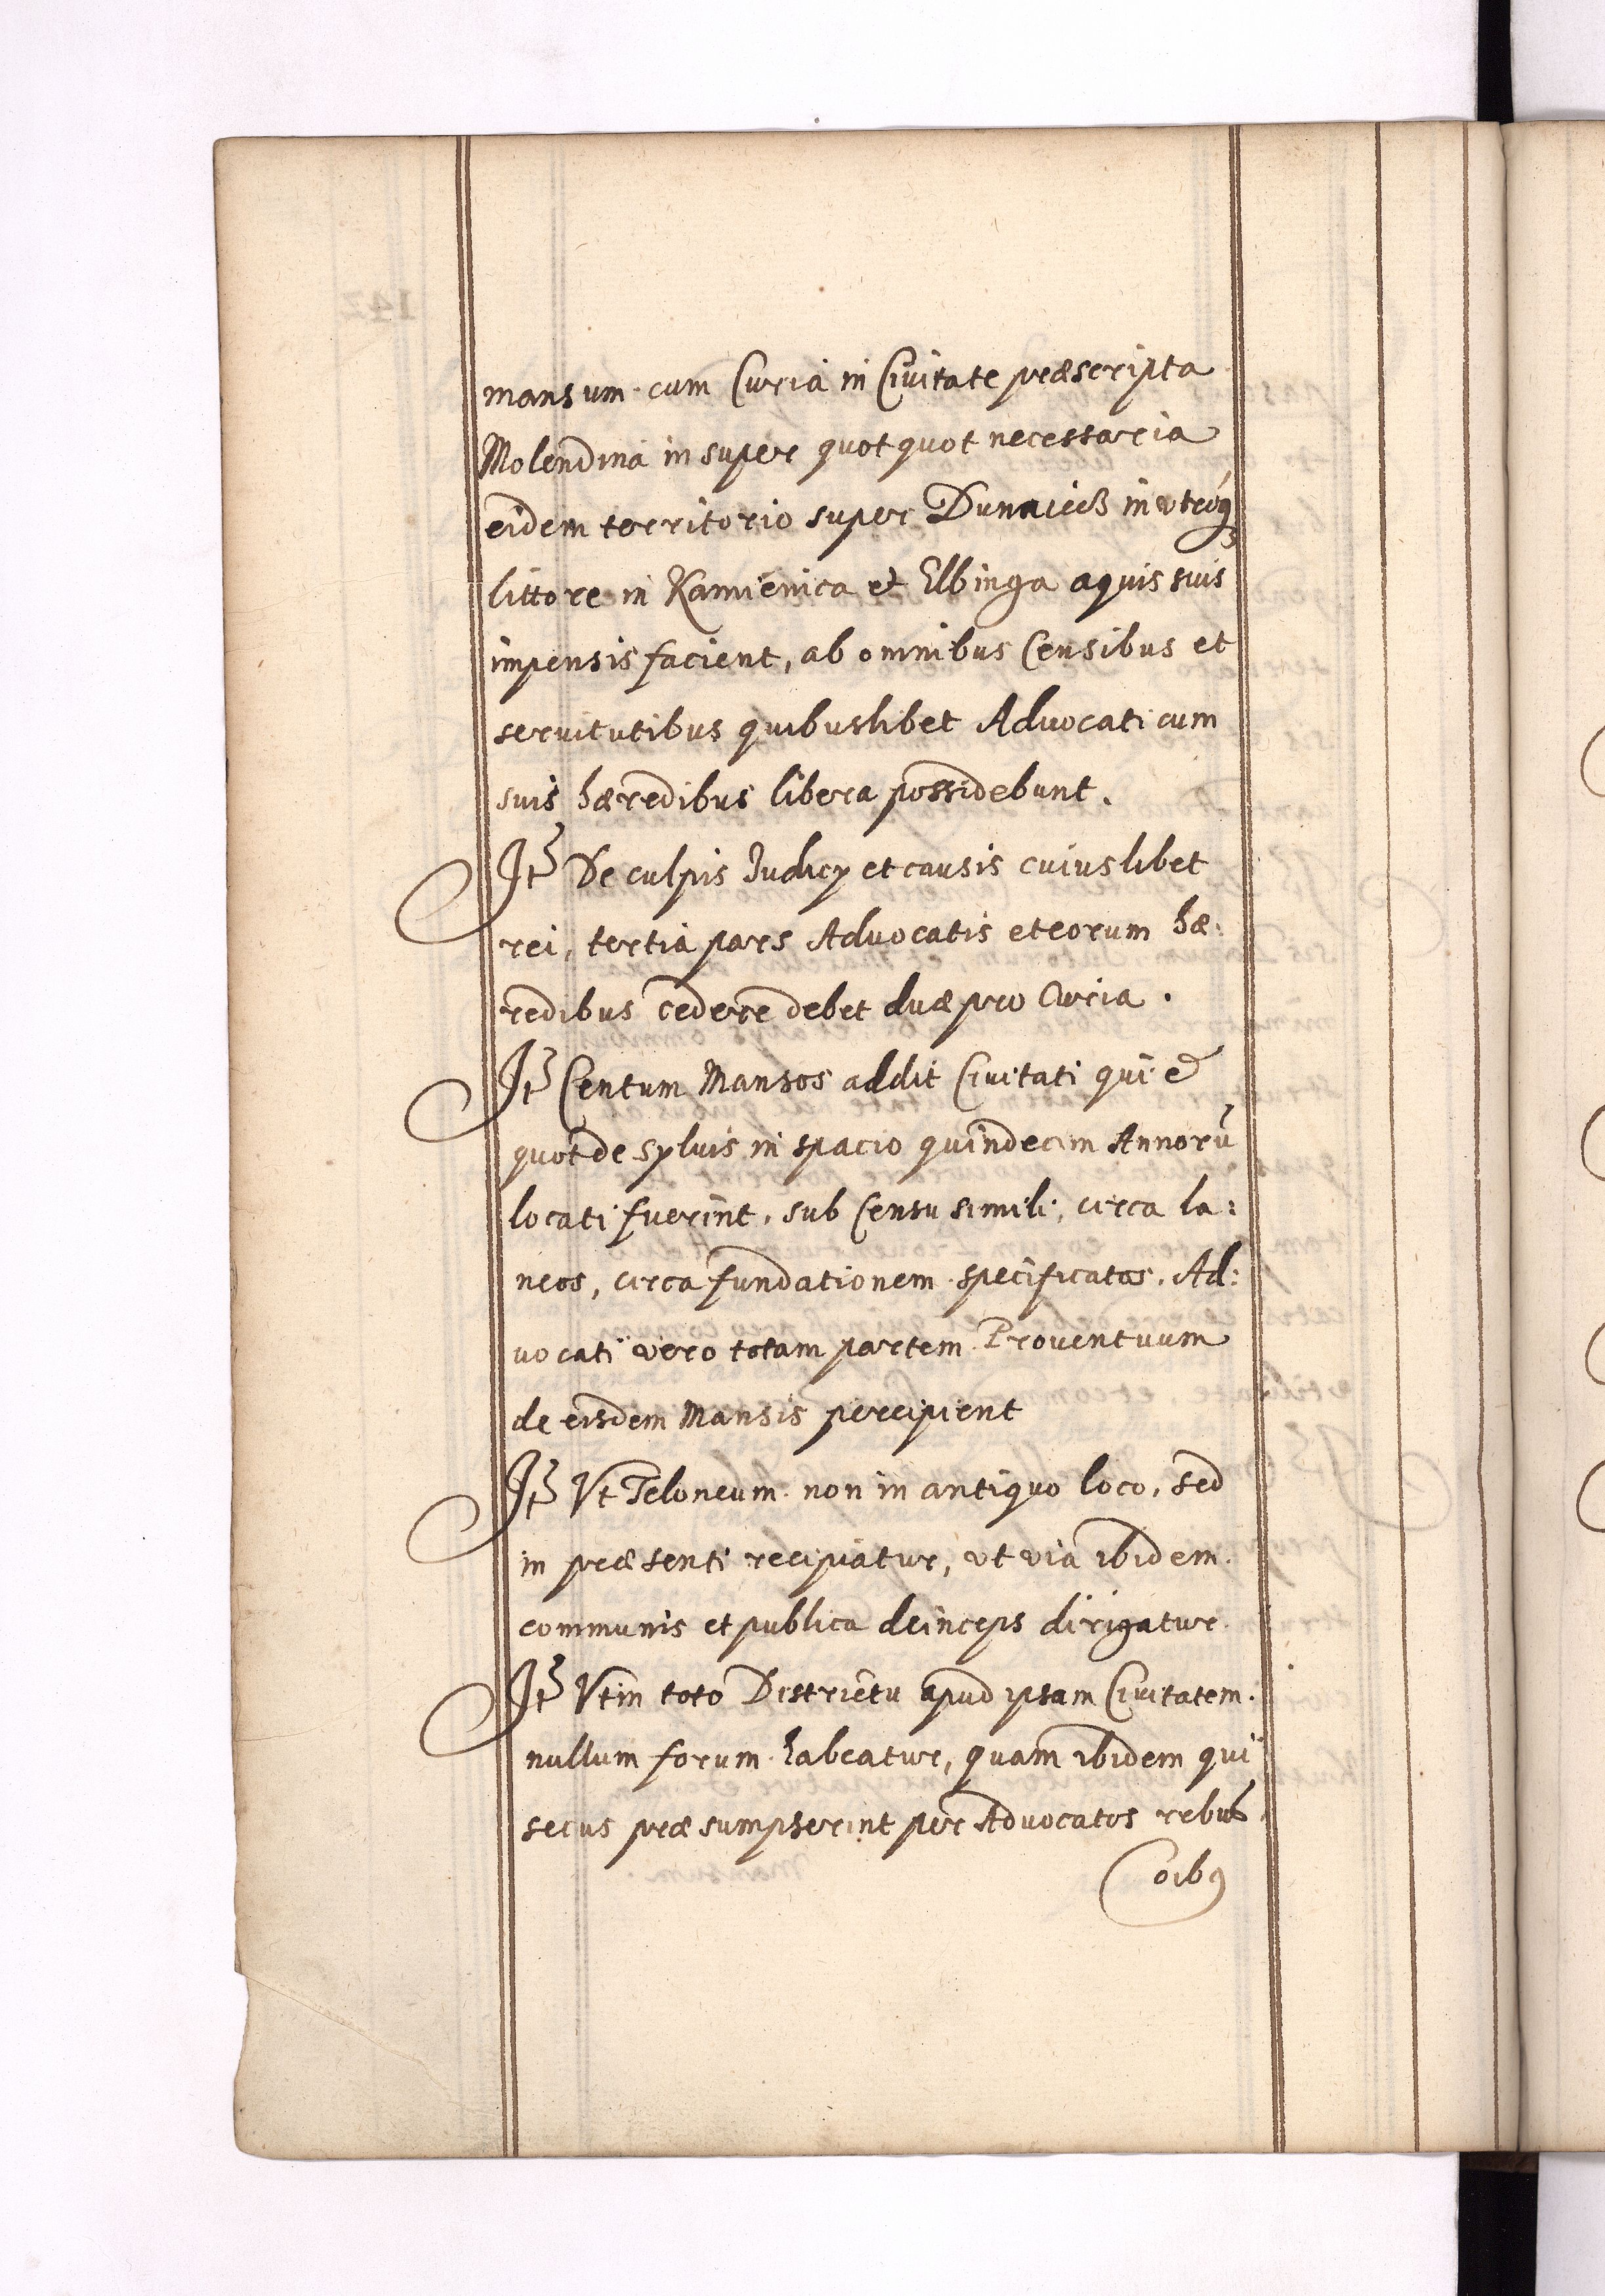 mansum cum Curia in Ciuitate præscripta
Molendina in super quotquot necessaria
eidem territorio super Dunaiecz in vtroq3
littore in Kamienica et Elbinga aquis suis
impensis facient, ab omnibus Censibus et
seruitutibus quibuslibet Aduocati cum
suis hæredibus libera possidebunt.
Jt3 De culpis Judicy et causis cuiuslibet
rei, tertia pars Aduocatis et eorum hæ:
redibus cedere debet duæ pro Curia.
Jt3 Centum Mansos addit Ciuitati qui e
quot de syluis in spacio quindecim Annorū
locati fuerint, sub Censu simili, circa la:
neos, circa fundationem specificatos. Ad:
uocati vero totam partem Prouentuum
de eisdem Mansis percipient
Jt3 Vt Teloneum non in antiquo loco, sed
in præsenti recipiatur, vt via ibidem
communis et publica deinceps dirigatur.
Jt3 Vt in toto Districtu apud ipsam Ciuitatem
nullum forum habeatur, quam ibidem qui
secus præsumpserint per Aduocatos rebus
oib9